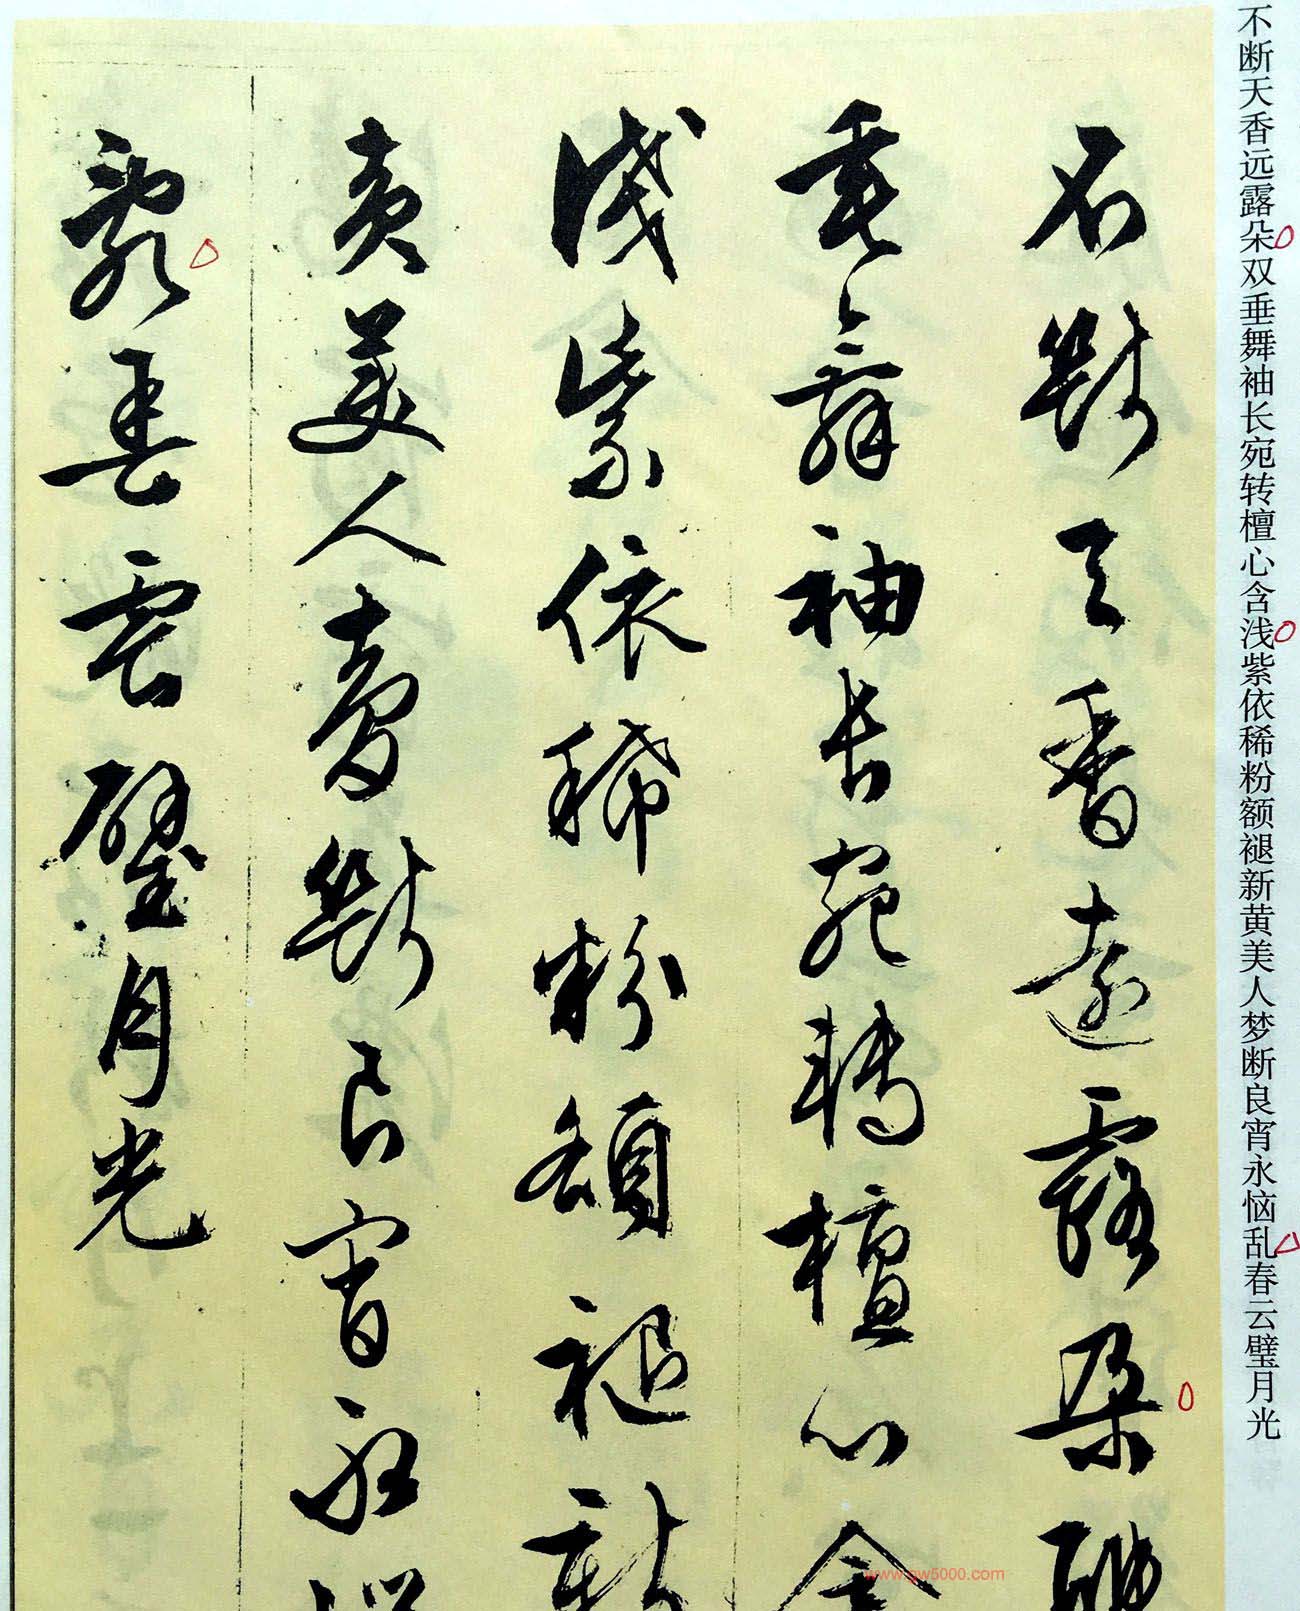 不断天香远露朵双垂舞袖长宛转檀心含浅紫依稀粉额褪新黄美人梦断良宵永恼乱春云璧月光
不斷天香遠露朵
垂舞袖長宛轉檀心含
淺紫依稀粉額褪新
黃美人夢斷良宵永惱
亂春雲璧月光
www.gw5000.com